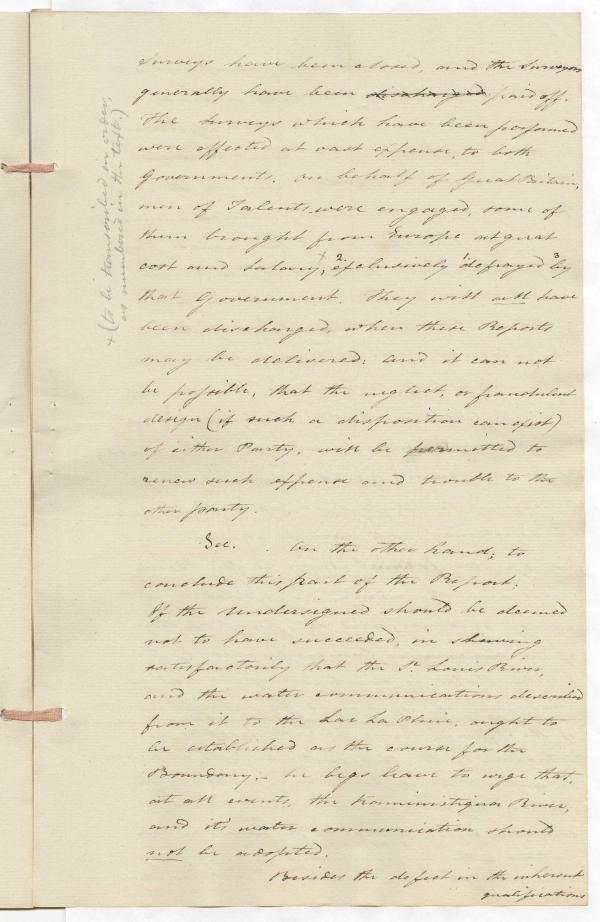 Surveys have been closed, and the Surveyors
generally have been discharged paid off.
The surveys which have been performed
were effected at vast expense, to both
Governments. On behalf of Great Britain,
men of Talents were engaged, some of
them brought from Europe at great
cost and Salary, × 2. exclusively "defrayed 3 by
that Government. They will all have
been discharged, when these Reports
may be delivered: and it can not
be possible, that the neglect, or fraudulent
design (if such a disposition can exist)
of either Party, will be permitted to
renew such expense and trouble to the
other party.
Sec. . On the other hand; to
conclude this part of the Report:
If the Undersigned should be deemed
not to have succeeded, in shewing
satisfactorily that the St. Louis River,
and the water communications described
from it to the Lac La Pluie, ought to
be established as the course for the
Boundary; he begs leave to urge that,
at all events, the Kaministiquia River,
and it's water communication should
not be adopted.
Besides the defect in the inherent
qualifications
× (to be transcribed in order,
as numbered in the text.)